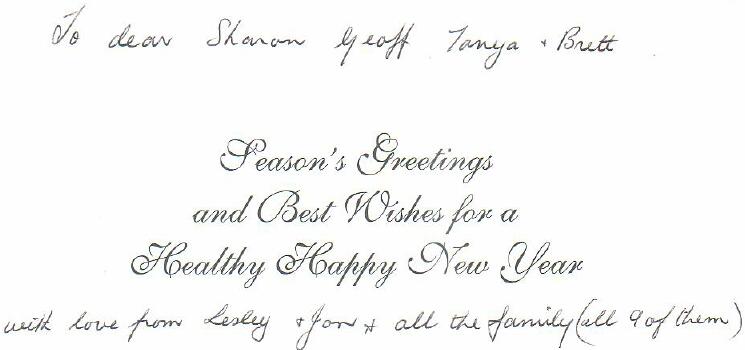 To dear Sharon Geoff Tanya + Brett
Season's Greetings
and Best Wishes for a
Healthy Happy New Year
with love from Lesley + Jon + all the family (all 9 of them)